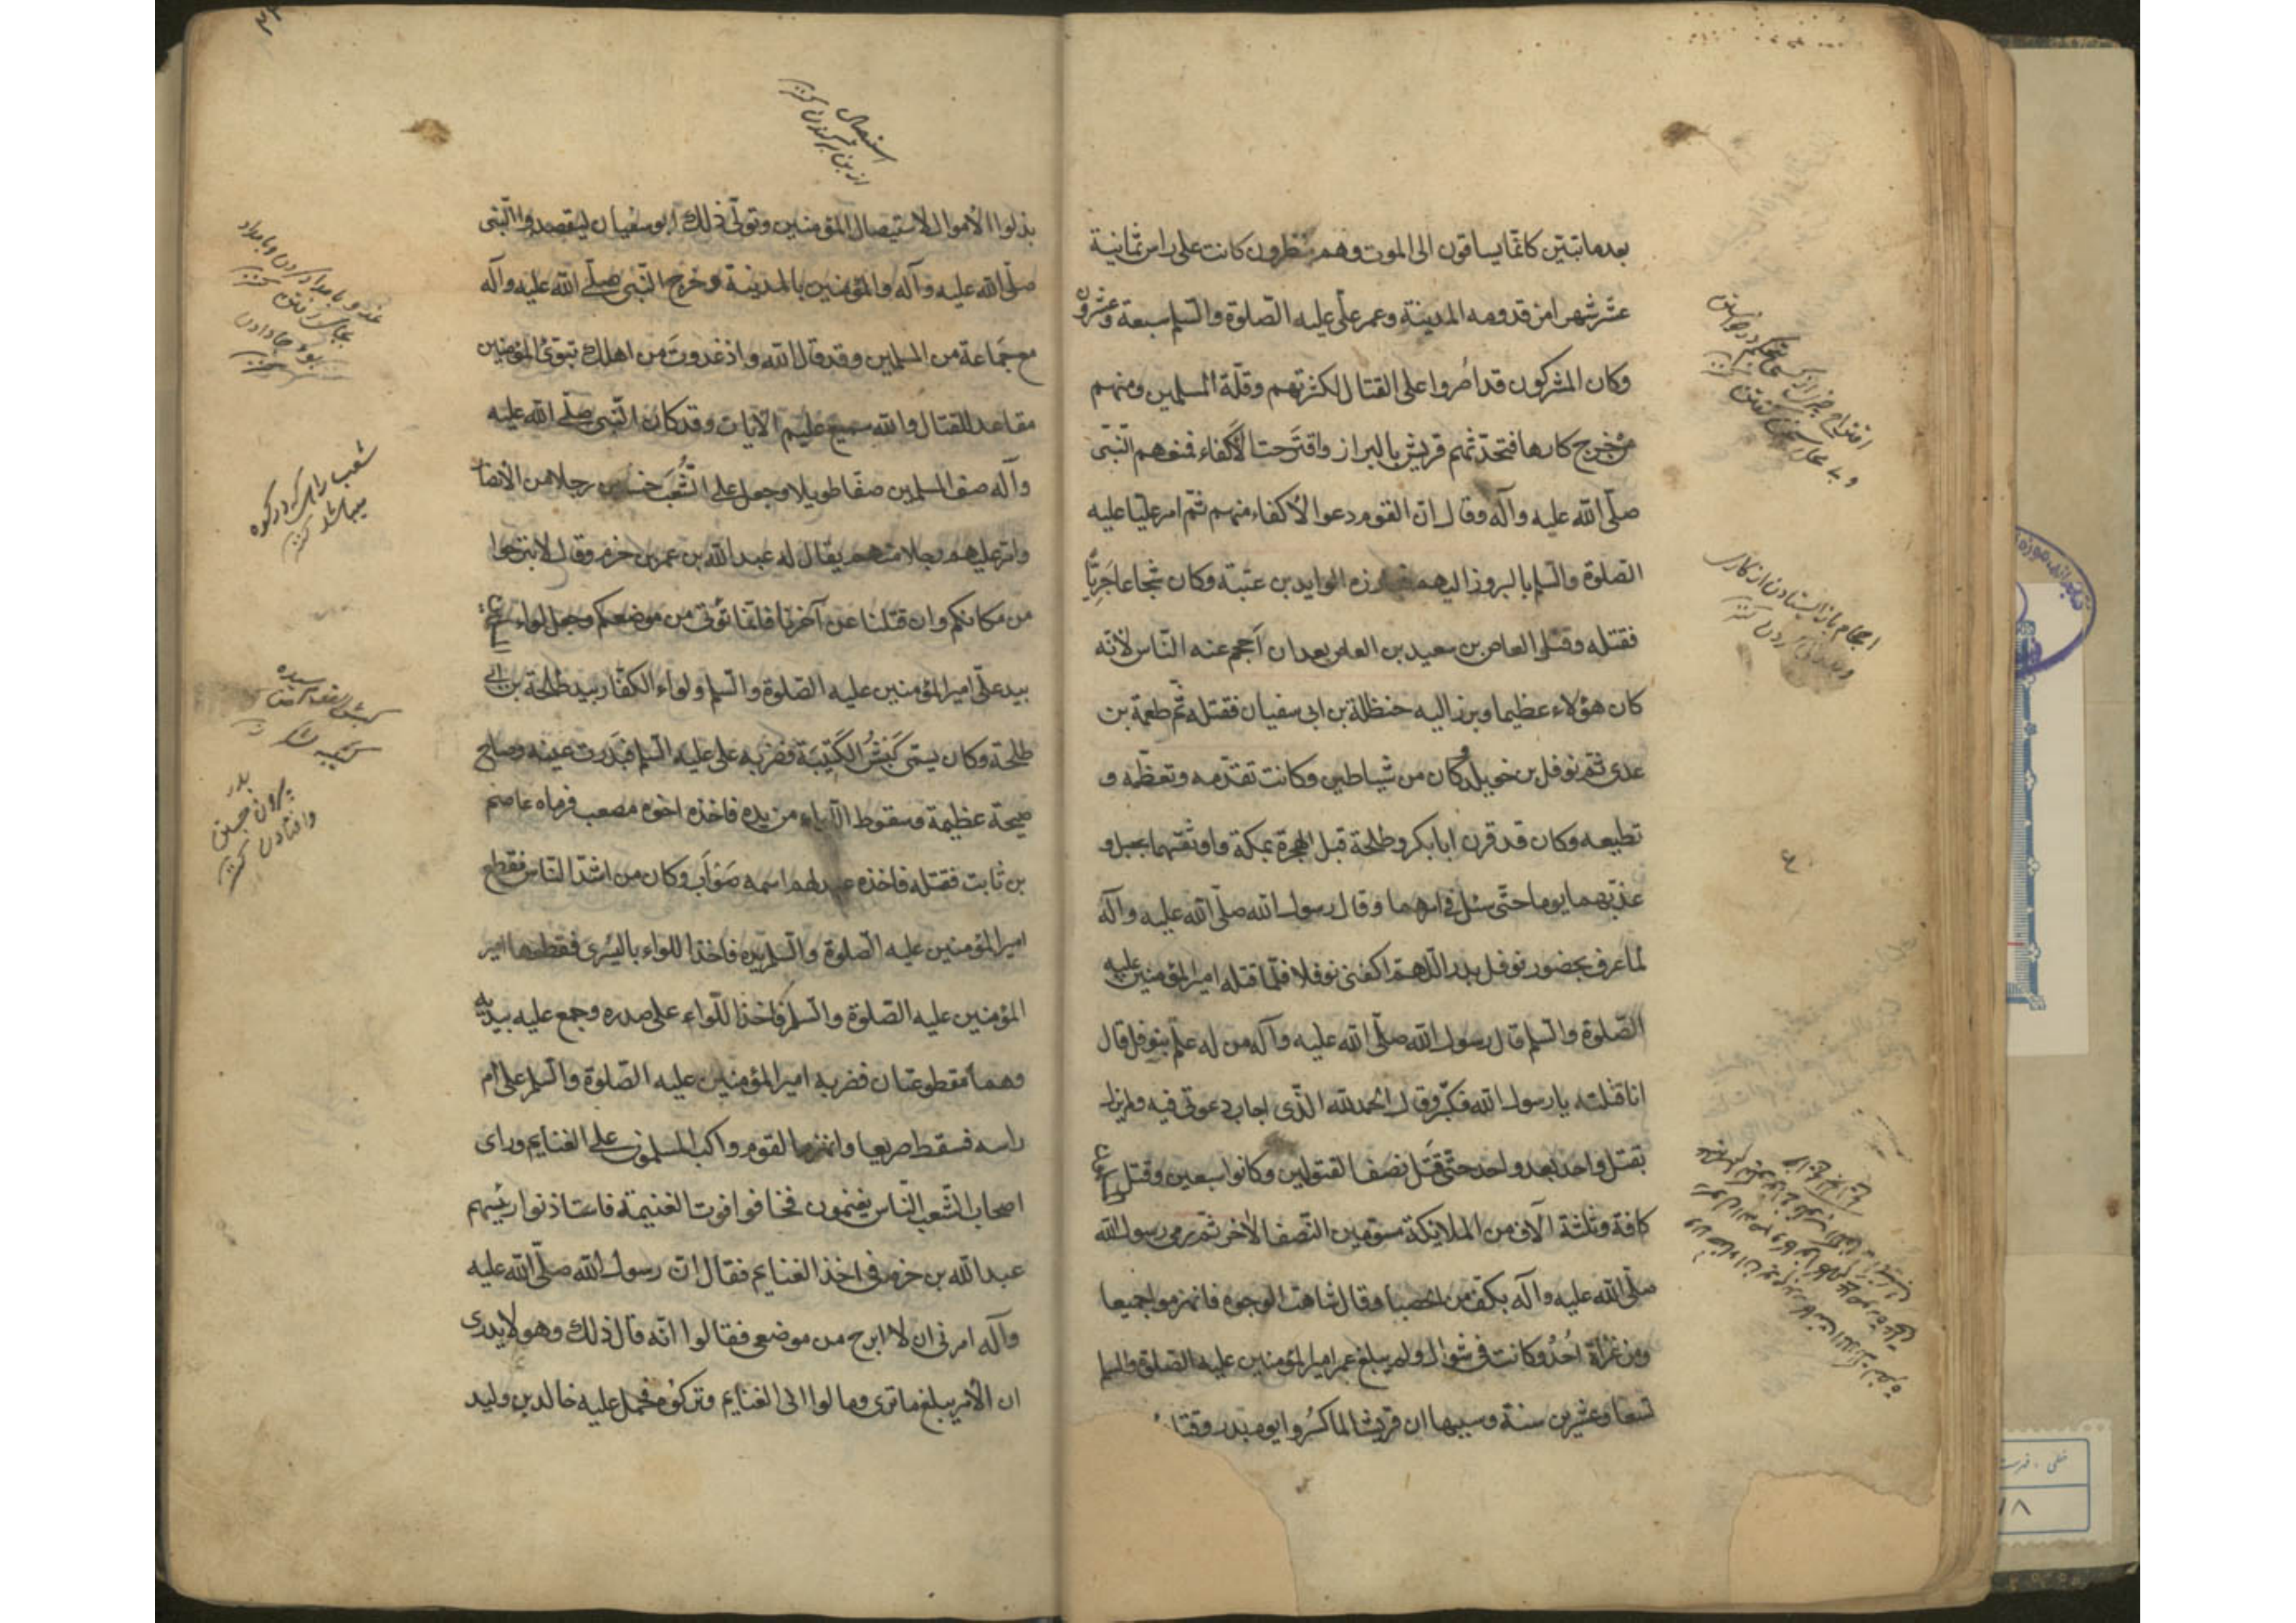 بعد ما تبتين كانما يساقون الى الموت وهم ينظرون كانت على راس ثمانية
عشر شهرا من قدومه المدينة وعمر على عليه الصلوة والسلم سبعة وعشرون
وكان المشركون قد اصروا على القتال لكثرتهم وقلة المسلمين ومنهم
من خرج كارها فتحدتهم قريش بالبراز واقترحت الاكفاء فمنعهم النبى
صلى الله عليه وآله وقال ان القوم دعوا الاكفاء منهم ثم امر عليا عليه
الصلوة والسلم بالبروز اليهم فبارزه الوليد بن عتبة وكان شجاعا جريّا
فقتله وقتل العاص بن سعيد بن العاص بعد ان احجم عنه الناس لانه
كان هؤلاء عظيما وبرز اليه حنظلة بن ابى سفيان فقتله ثم طعمة بن
عدى ثم نوفل بن خويلد وكان من شياطين وكانت تقدمه وتعظمه و
تطيعه وكان قد قرن ابا بكر وطلحة قبل الهجرة بمكة واوثقهما بحبل و
عذبهما يوما حتى سئل فى امرهما وقال رسول الله صلى الله عليه وآله
لما عرف بحضور نوفل بدر اللهم اكفنى نوفلا فلما قتله امير المؤمنين عليه
الصلوة والسلم قال رسول الله صلى الله عليه وآله من له علم بنوفل قال
انا قتلته يا رسول الله فكبر وقال الحمد لله الذى اجاب دعوتى فيه ولم يزل
يقتل واحد بعد واحد حتى قتل نصف المقتولين وكانوا سبعين وقتل
كافة وثلثة آلاف من الملايكة مسومين النصف الاخر ثم رمى رسول الله
صلى الله عليه وآله بكف من الحصبا وقال شاهت الوجوه فانهزموا جميعا
ومن غزاة احد وكانت فى شوال ولم يبلغ عمر امير المؤمنين عليه الصلوة والسلم
تسعا وعشرين سنة وسببها ان قريشا لما كسروا يوم بدر وقتل
استيصال
از بن بر كندن كنز
بذلوا الاموال لاستيصال المؤمنين وتولى ذلك ابو سفيان ليقصدوا النبى
صلى الله عليه وآله والمؤمنين بالمدينة وخرج النبى صلى الله عليه وآله
مع جماعة من المسلمين وقد قال الله واذ غدوت من اهلك تبوئ المؤمنين
مقاعد للقتال والله سميع عليم الآيات وقد كان النبى صلى الله عليه
وآله صف المسلمين صفا طويلا وجعل على الشعب خمسين رجلا من الانصا
وامر عليهم رجلا منهم يقال له عبد الله بن عمر بن خرم وقال لا تبرحوا
من مكانكم وان قتلنا عن آخرنا فانما نؤتى من موضعكم وجعل لواء
بيد على امير المؤمنين عليه الصلوة والسلم ولواء الكفار بيد طلحة بن ابى
طلحة وكان يسمى كبش الكتيبة فضربه على عليه السلم فبدرت عينه وصاح
صيحة عظيمة فسقوط اللواء من يده فاخذه اخوه مصعب فرماه عاصم
بن ثابت فقتله فاخذه عبد لهم اسمه صواب وكان من اشد الناس فقطع
امير المؤمنين عليه الصلوة والسلم يده فاخذ اللواء باليسرى فقطعها امير
المؤمنين عليه الصلوة والسلم فاخذ اللواء على صدره وجمع عليه بيديه
وهما مقطوعتان فضربه امير المؤمنين عليه الصلوة والسلم على ام
راسه فسقط صريعا وانهزم القوم واكب المسلمون على الغنايم وراى
اصحاب الشعب الناس يغنمون فخافوا فوت الغنيمة فاستاذنوا رئيسهم
عبد الله بن خرم فى اخذ الغنايم فقال ان رسول الله صلى الله عليه
وآله امرنى ان لا ابرح من موضعى فقالوا انه قال ذلك وهو لا يدرى
ان الامر يبلغ ما ترى ومالوا الى الغنايم وتركوه فحمل عليه خالد بن وليد
شعب راهى كه در كوه
ميباشد كنز
بدر
بيرون جستن
وافتادن كنز
١٨